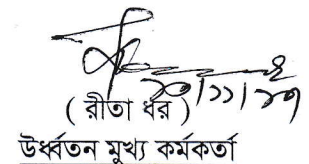 ( রীতা ধর )
উর্ধ্বতন মুখ্য কর্মকর্তা